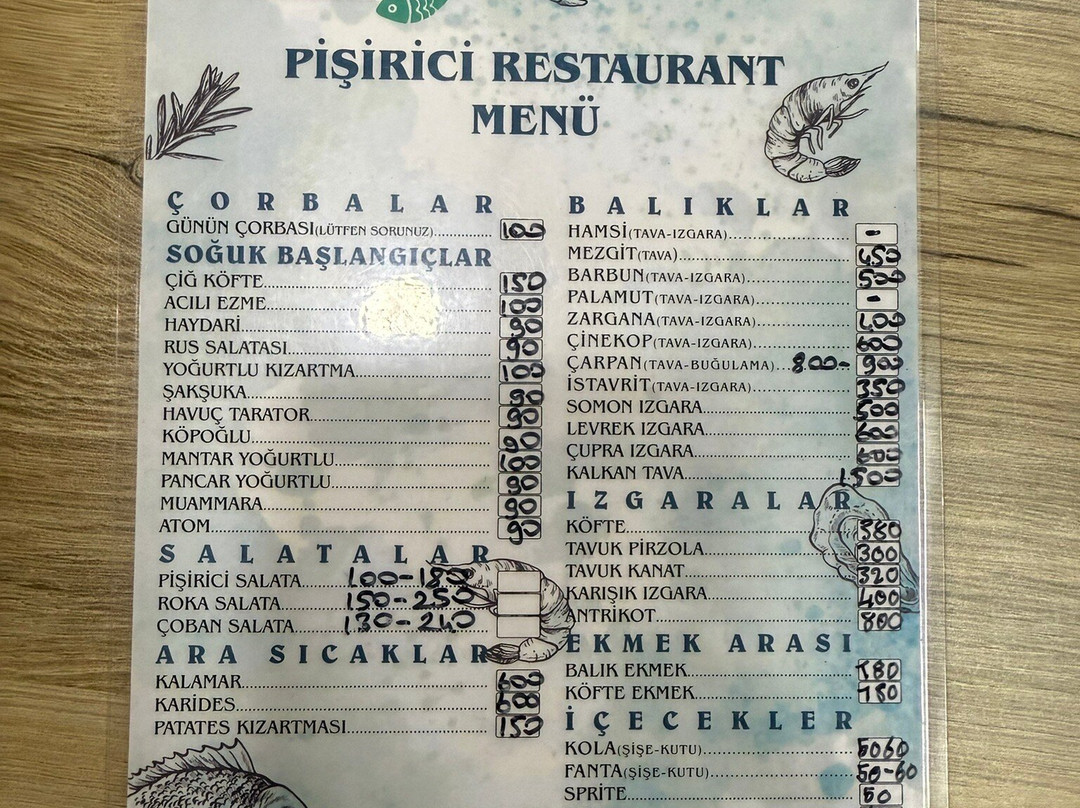 PİŞİRİCİ RESTAURANT
MENÜ
ÇORBALAR
GÜNÜN ÇORBASI(LÜTFEN SORUNUZ) 100
SOĞUK BAŞLANGIÇLAR
ÇİĞ KÖFTE 150
ACILI EZME 100
HAYDARİ 90
RUS SALATASI 90
YOĞURTLU KIZARTMA 100
ŞAKŞUKA 90
HAVUÇ TARATOR 90
KÖPOĞLU 90
MANTAR YOĞURTLU 100
PANCAR YOĞURTLU 90
MUAMMARA 90
ATOM 90
SALATALAR
PİŞİRİCİ SALATA 100-180
ROKA SALATA 150-250
ÇOBAN SALATA 130-240
ARA SICAKLAR
KALAMAR 600
KARİDES 600
PATATES KIZARTMASI 150
BALIKLAR
HAMSİ(TAVA-IZGARA) -
MEZGİT(TAVA) 450
BARBUN(TAVA-IZGARA) 500
PALAMUT(TAVA-IZGARA) -
ZARGANA(TAVA-IZGARA) 400
ÇİNEKOP(TAVA-IZGARA) 600
ÇARPAN(TAVA-BUĞULAMA) 800- 900
İSTAVRİT(TAVA-IZGARA) 350
SOMON IZGARA 500
LEVREK IZGARA
ÇUPRA IZGARA
KALKAN TAVA 1500
IZGARALAR
KÖFTE
TAVUK PİRZOLA 300
TAVUK KANAT 320
KARIŞIK IZGARA 400
ANTRİKOT 800
EKMEK ARASI
BALIK EKMEK 180
KÖFTE EKMEK 180
İÇECEKLER
KOLA(ŞİŞE-KUTU) 50 60
FANTA(ŞİŞE-KUTU) 50-60
SPRİTE 50